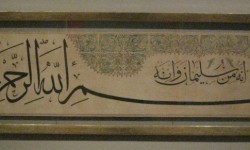 انه من سليمان وانه
ـم الله الرحمـ